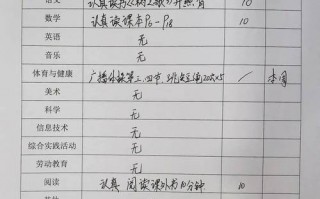 语文 认真读 10
数学 认真读课本P6-P8 10
英语 无
音乐 无
体育与健康 广播体操第三、四节、 / 本周
美术 无
科学 无
信息技术 无
综合实践活动 无
劳动教育 无
阅读 认真阅读课外书10分钟 10